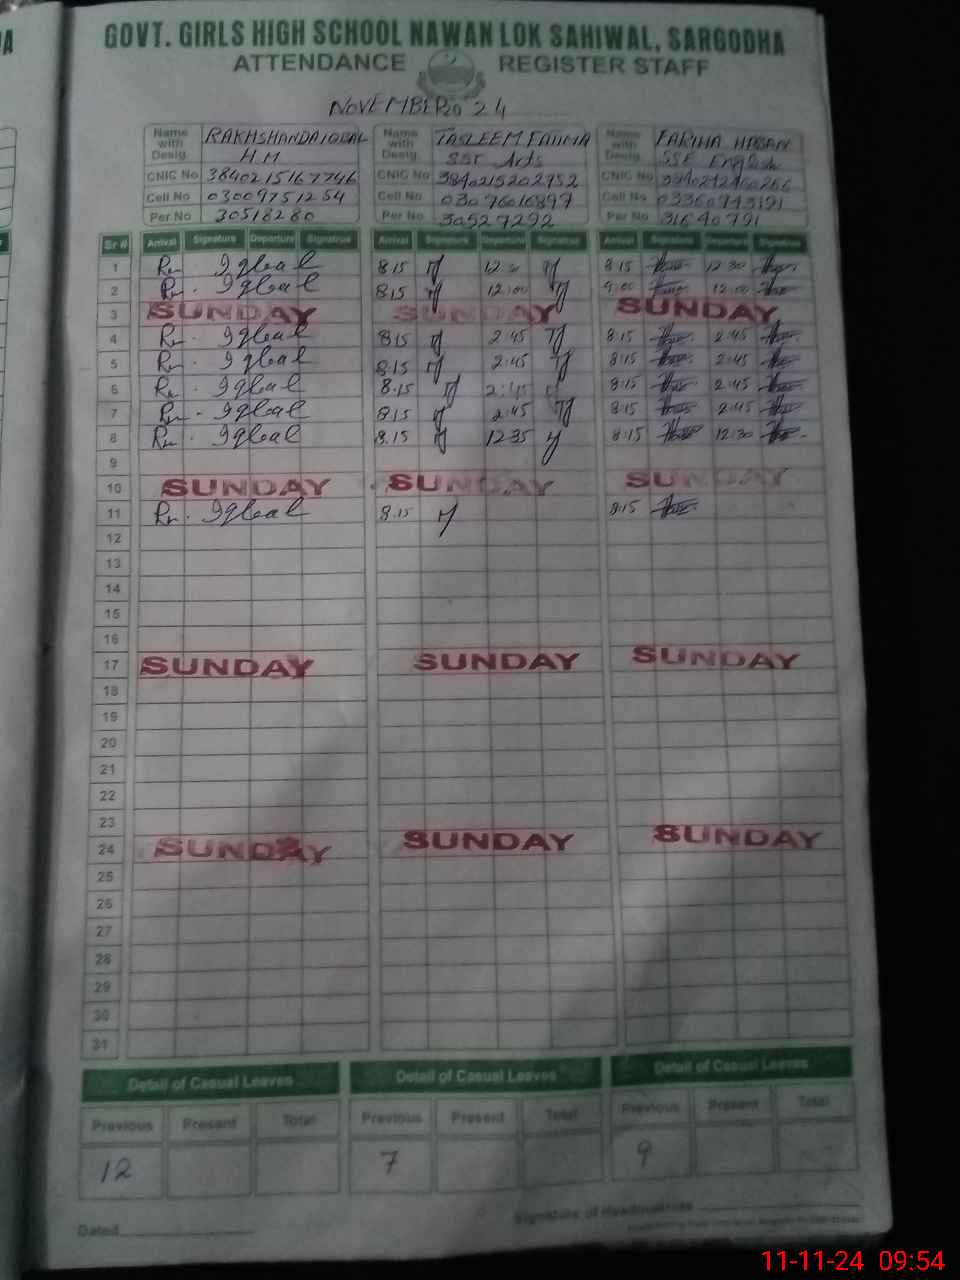 GOVT. GIRLS HIGH SCHOOL NAWAN LOK SAHIWAL, SARGODHA
ATTENDANCE REGISTER STAFF
NOVEMBER 2024
Name with Desig. RAKHSHANDA IQBAL H.M
CNIC No 3840215167746
Cell No 03009751254
Per No 30518280
Name with Desig. TASLEEM FATIMA SST Arts
CNIC No 3840215202952
Cell No 03076016897
Per No 30527292
Name with Desig. FARIHA HASAN SSE English
CNIC No
Cell No 03360743191
Per No 31640791
Sr # Arrival Signature Departure Signatrue Arrival Signature Departure Signatrue Arrival Signature Departure Signatrue
1 Iqbal 8:15 8:15 12:30
2 Iqbal 8:15 12:00 9:00 12:00
3 SUNDAY SUNDAY SUNDAY
4 Iqbal 8:15 2:45 8:15 2:45
5 Iqbal 8:15 2:45 8:15 2:45
6 Iqbal 8:15 2:45 8:15 2:45
7 Iqbal 8:15 2:45 8:15 2:45
8 Iqbal 8:15 12:35 8:15 12:30
9
10 SUNDAY SUNDAY SUNDAY
11 Iqbal 8:15 8:15
12
13
14
15
16
17 SUNDAY SUNDAY SUNDAY
18
19
20
21
22
23
24 SUNDAY SUNDAY SUNDAY
25
26
27
28
29
30
31
Detail of Casual Leaves Detail of Casual Leaves Detail of Casual Leaves
Previous Present Total Previous Present Total Previous Present Total
12 7 9
Dated Signature of Headmistress
11-11-24 09:54